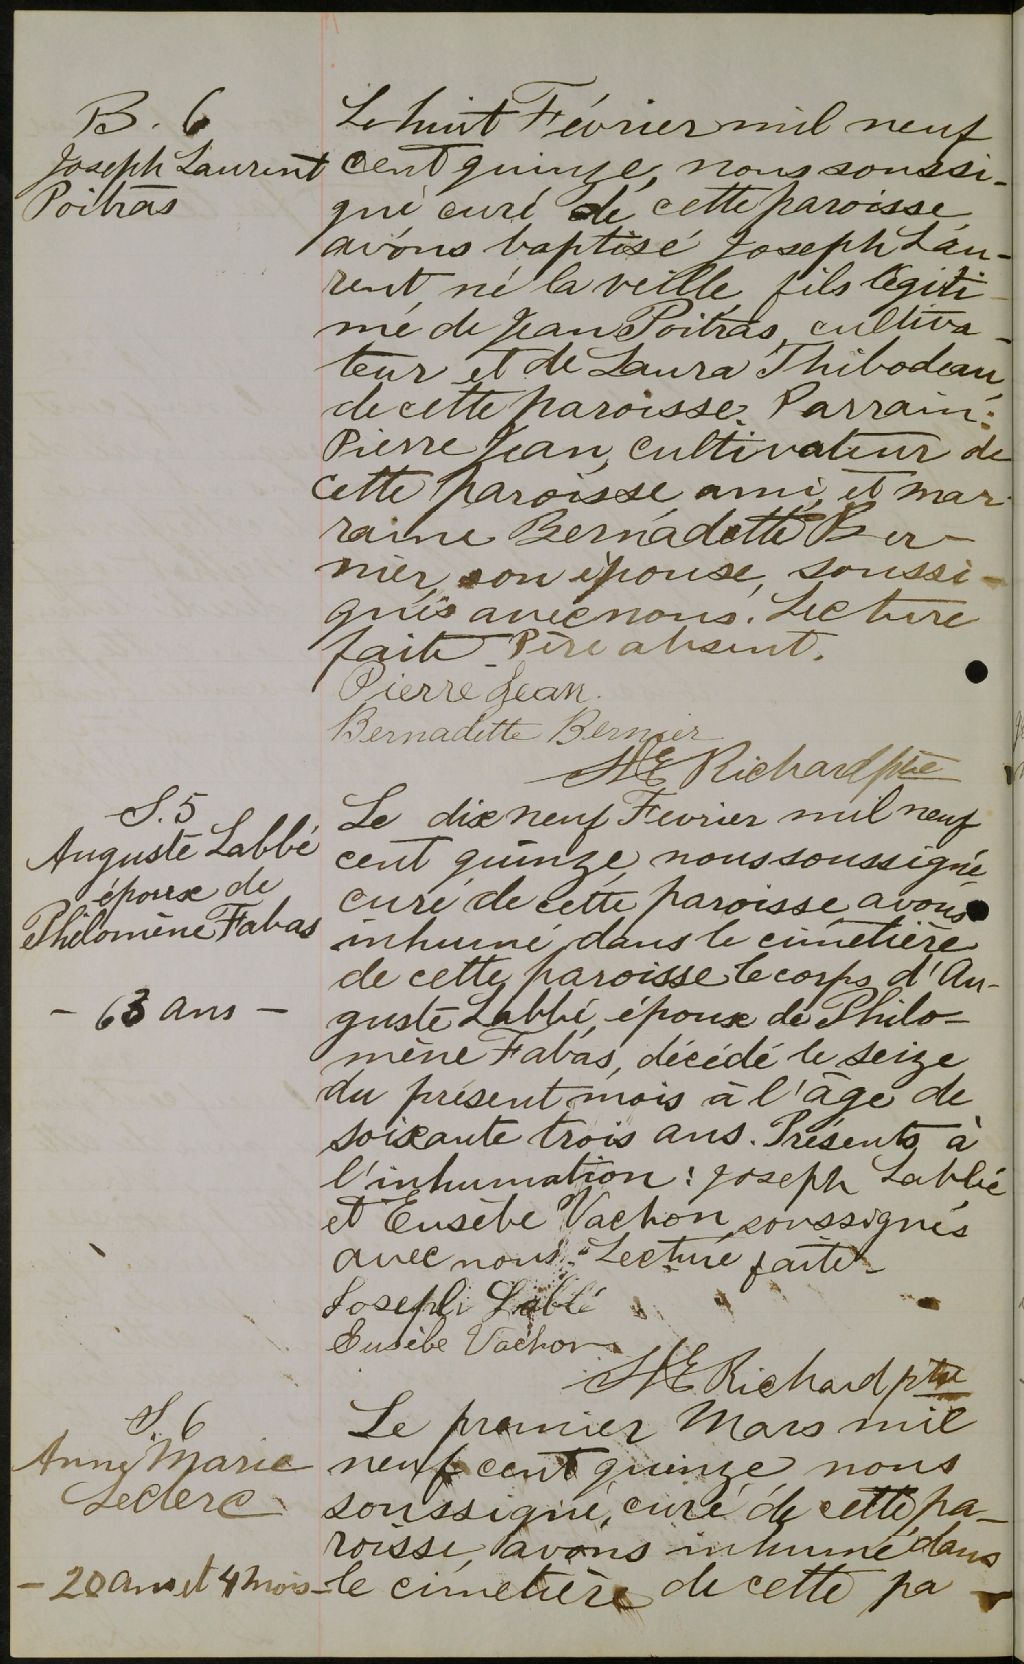 B. 6
Joseph Laurent
Poitras
Le huit Février mil neuf
cent quinze, nous soussi-
gné curé de cette paroisse
avons baptisé Joseph Lau-
rent, né la veille, fils légiti-
me de Jean Poitras, cultiva-
teur et de Laura Thibodeau,
de cette paroisse. Parrain:
Pierre Jean, cultivateur de
cette paroisse, ami, et mar-
raine Bernadette Ber-
nier, son épouse, soussi-
gnés avec nous. Lecture
faite. Père absent.
Pierre Jean.
Bernadette Bernier
Richard ptre
S. 5
Auguste Labbé
époux de
Philomène Fabas
- 63 ans -
Le dix neuf Fevrier mil neuf
cent quinze, nous soussigné
curé de cette paroisse avons
inhumé dans le cimetière
de cette paroisse le corps d'Au-
guste Labbé, époux de Philo-
mène Fabas, décédé le seize
du présent mois à l'âge de
soixante trois ans. Présents à
l'inhumation: Joseph Labbé
et Eusèbe Vachon soussignés
avec nous. Lecture faite.
Joseph Labbé
Eusèbe Vachon
Richard ptre
S. 6
Anne Marie
Leclerc
- 20 ans et 4 mois -
Le premier Mars mil
neuf cent quinze nous
soussigné, curé de cette pa-
roisse, avons inhumé dans
le cimetière de cette pa